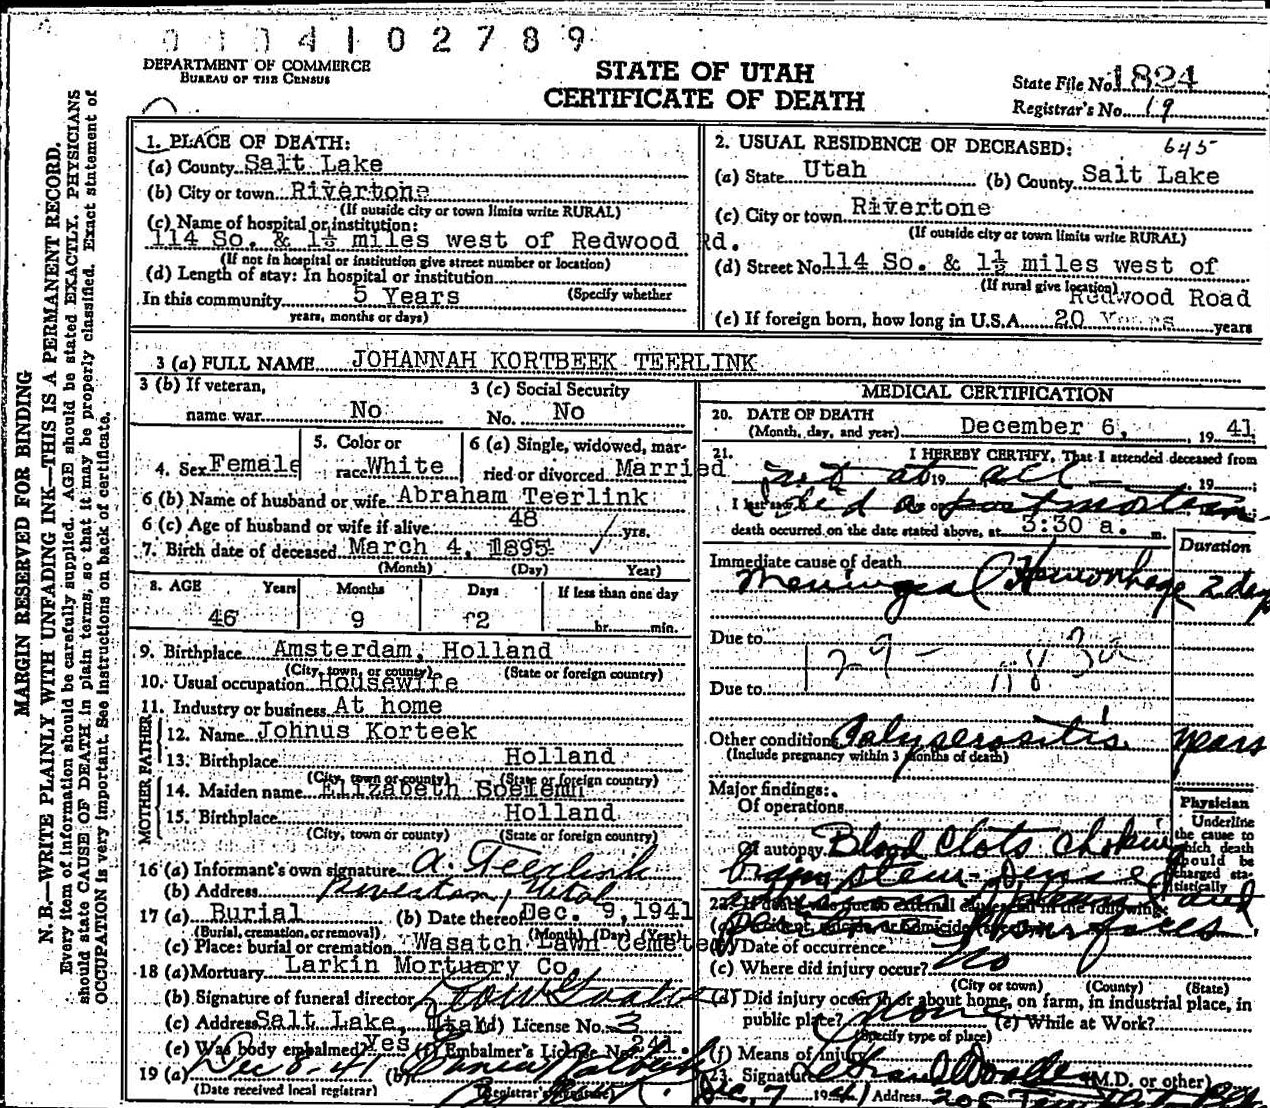 0 1 0 4 1 0 2 7 8 9
DEPARTMENT OF COMMERCE
BUREAU OF THE CENSUS
STATE OF UTAH
CERTIFICATE OF DEATH
State File No. 1824
Registrar's No. 19
MARGIN RESERVED FOR BINDING
N. B.—WRITE PLAINLY WITH UNFADING INK—THIS IS A PERMANENT RECORD.
Every item of information should be carefully supplied. AGE should be stated EXACTLY. PHYSICIANS
should state CAUSE OF DEATH in plain terms, so that it may be properly classified. Exact statement of
OCCUPATION is very important. See instructions on back of certificate.
1. PLACE OF DEATH:
(a) County Salt Lake
(b) City or town Rivertone
(If outside city or town limits write RURAL)
(c) Name of hospital or institution:
114 So. & 1½ miles west of Redwood Rd.
(If not in hospital or institution give street number or location)
(d) Length of stay: In hospital or institution
In this community 5 Years (Specify whether
years, months or days)
2. USUAL RESIDENCE OF DECEASED: 645
(a) State Utah (b) County Salt Lake
(c) City or town Rivertone
(If outside city or town limits write RURAL)
(d) Street No. 114 So. & 1½ miles west of
(If rural give location)
Redwood Road
(e) If foreign born, how long in U.S.A. 20 Years years
3 (a) FULL NAME JOHANNAH KORTBEEK TEERLINK
3 (b) If veteran,
name war No
3 (c) Social Security
No. No
4. Sex Female
5. Color or
race White
6 (a) Single, widowed, mar-
ried or divorced Married
6 (b) Name of husband or wife Abraham Teerlink
6 (c) Age of husband or wife if alive 48 yrs.
7. Birth date of deceased March 4, 1895
(Month) (Day) Year)
8. AGE Years Months Days If less than one day
46 9 2 hr. min.
9. Birthplace Amsterdam, Holland
(City, town, or county) (State or foreign country)
10. Usual occupation Housewife
11. Industry or business At home
FATHER
12. Name Johnus Korteek
13. Birthplace Holland
(City, town or county) (State or foreign country)
MOTHER
14. Maiden name Elizabeth
15. Birthplace Holland
(City, town or county) (State or foreign country)
16 (a) Informant's own signature A. Teerlink
(b) Address Riverton, Utah
17 (a) Burial (b) Date thereof Dec. 9, 1941
(Burial, cremation, or removal) (Month) (Day) (Year)
(c) Place: burial or cremation Wasatch Lawn Cemetery
18 (a) Mortuary Larkin Mortuary Co.
(b) Signature of funeral director
(c) Address Salt Lake, Utah (d) License No. 3
(e) Was body embalmed? Yes (f) Embalmer's License No. 24
19 (a) Dec 8-41 (b)
(Date received local registrar) (Registrar's signature)
MEDICAL CERTIFICATION
20. DATE OF DEATH
(Month, day, and year) December 6, 19 41
21. I HEREBY CERTIFY, That I attended deceased from
not at all 19 19
I last saw postmortem
death occurred on the date stated above, at 3:30 a. m.
Duration
Immediate cause of death
Meningeal Hemorrhage 2 days
Due to
Due to
Other conditions Polyserositis years
(Include pregnancy within 3 months of death)
Major findings:
Of operations
Physician
Underline
the cause to
which death
should be
charged sta-
tistically
Of autopsy Blood Clots choking
brain stem - Dense
22. If death was due to external causes, fill in the following:
(a) Accident, suicide, or homicide (specify) surfaces
(b) Date of occurrence
(c) Where did injury occur? No
(City or town) (County) (State)
(d) Did injury occur in or about home, on farm, in industrial place, in
public place? None (e) While at Work?
(Specify type of place)
(f) Means of injury
23. Signature (M.D. or other)
Dec. 7 1941 Address